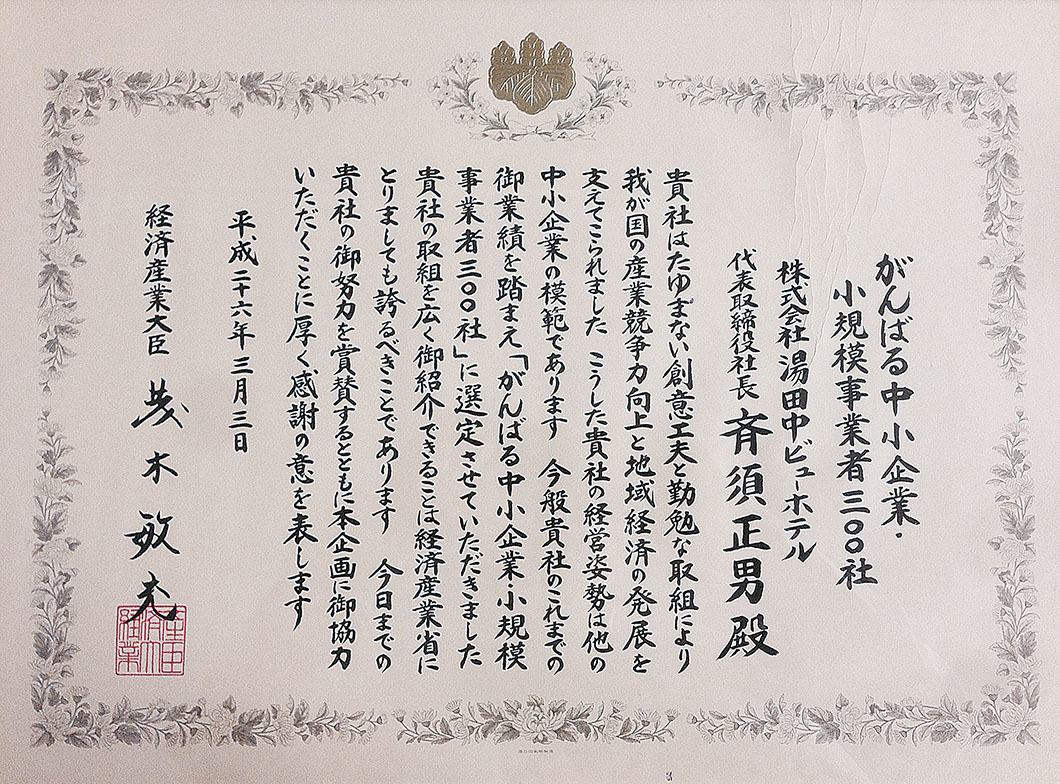 がんばる中小企業・
小規模事業者三〇〇社
株式会社湯田中ビューホテル
代表取締役社長 斉須正男殿
貴社はたゆまない創意工夫と勤勉な取組により
我が国の産業競争力向上と地域経済の発展を
支えてこられました こうした貴社の経営姿勢は他の
中小企業の模範であります 今般貴社のこれまでの
御業績を踏まえ「がんばる中小企業・小規模
事業者三〇〇社」に選定させていただきました
貴社の取組を広く御紹介できることは経済産業省に
とりましても誇るべきことであります 今日までの
貴社の御努力を賞賛するとともに本企画に御協力
いただくことに厚く感謝の意を表します
平成二十六年三月三日
経済産業大臣 茂木敏充